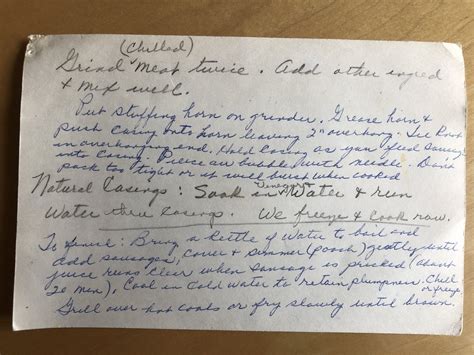 (Chilled)
Grind meat twice. Add other ingred
& mix well.
Put stuffing horn on grinder. Grease horn &
push casing onto horn leaving 2" overhang. Tie knot
in overhanging end. Hold casing as you feed sausage
into casing. Pierce air bubbles with needle. Don't
pack too tight or it will burst when cooked
Natural Casings: Soak in Vinegar & Water & run
Water thru casings. We freeze & cook raw.
To Serve: Bring a kettle of water to boil and
add sausages, cover & simmer (poach) gently until
juice runs clear when sausage is pricked (about
20 min), Cool in cold water to retain plumpness. Chill
or freeze
Grill over hot coals or fry slowly until brown.